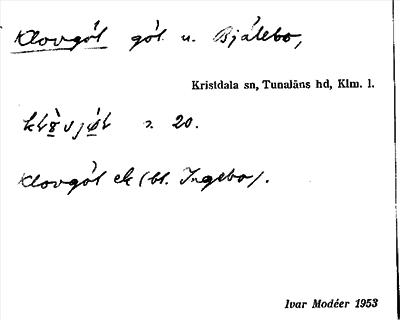 Klovgöl göl u. Bjälebo,
Kristdala sn, Tunaläns hd, Klm. l.
20.
Klovgöl ek (bl. Ingebo).
Ivar Modéer 1953